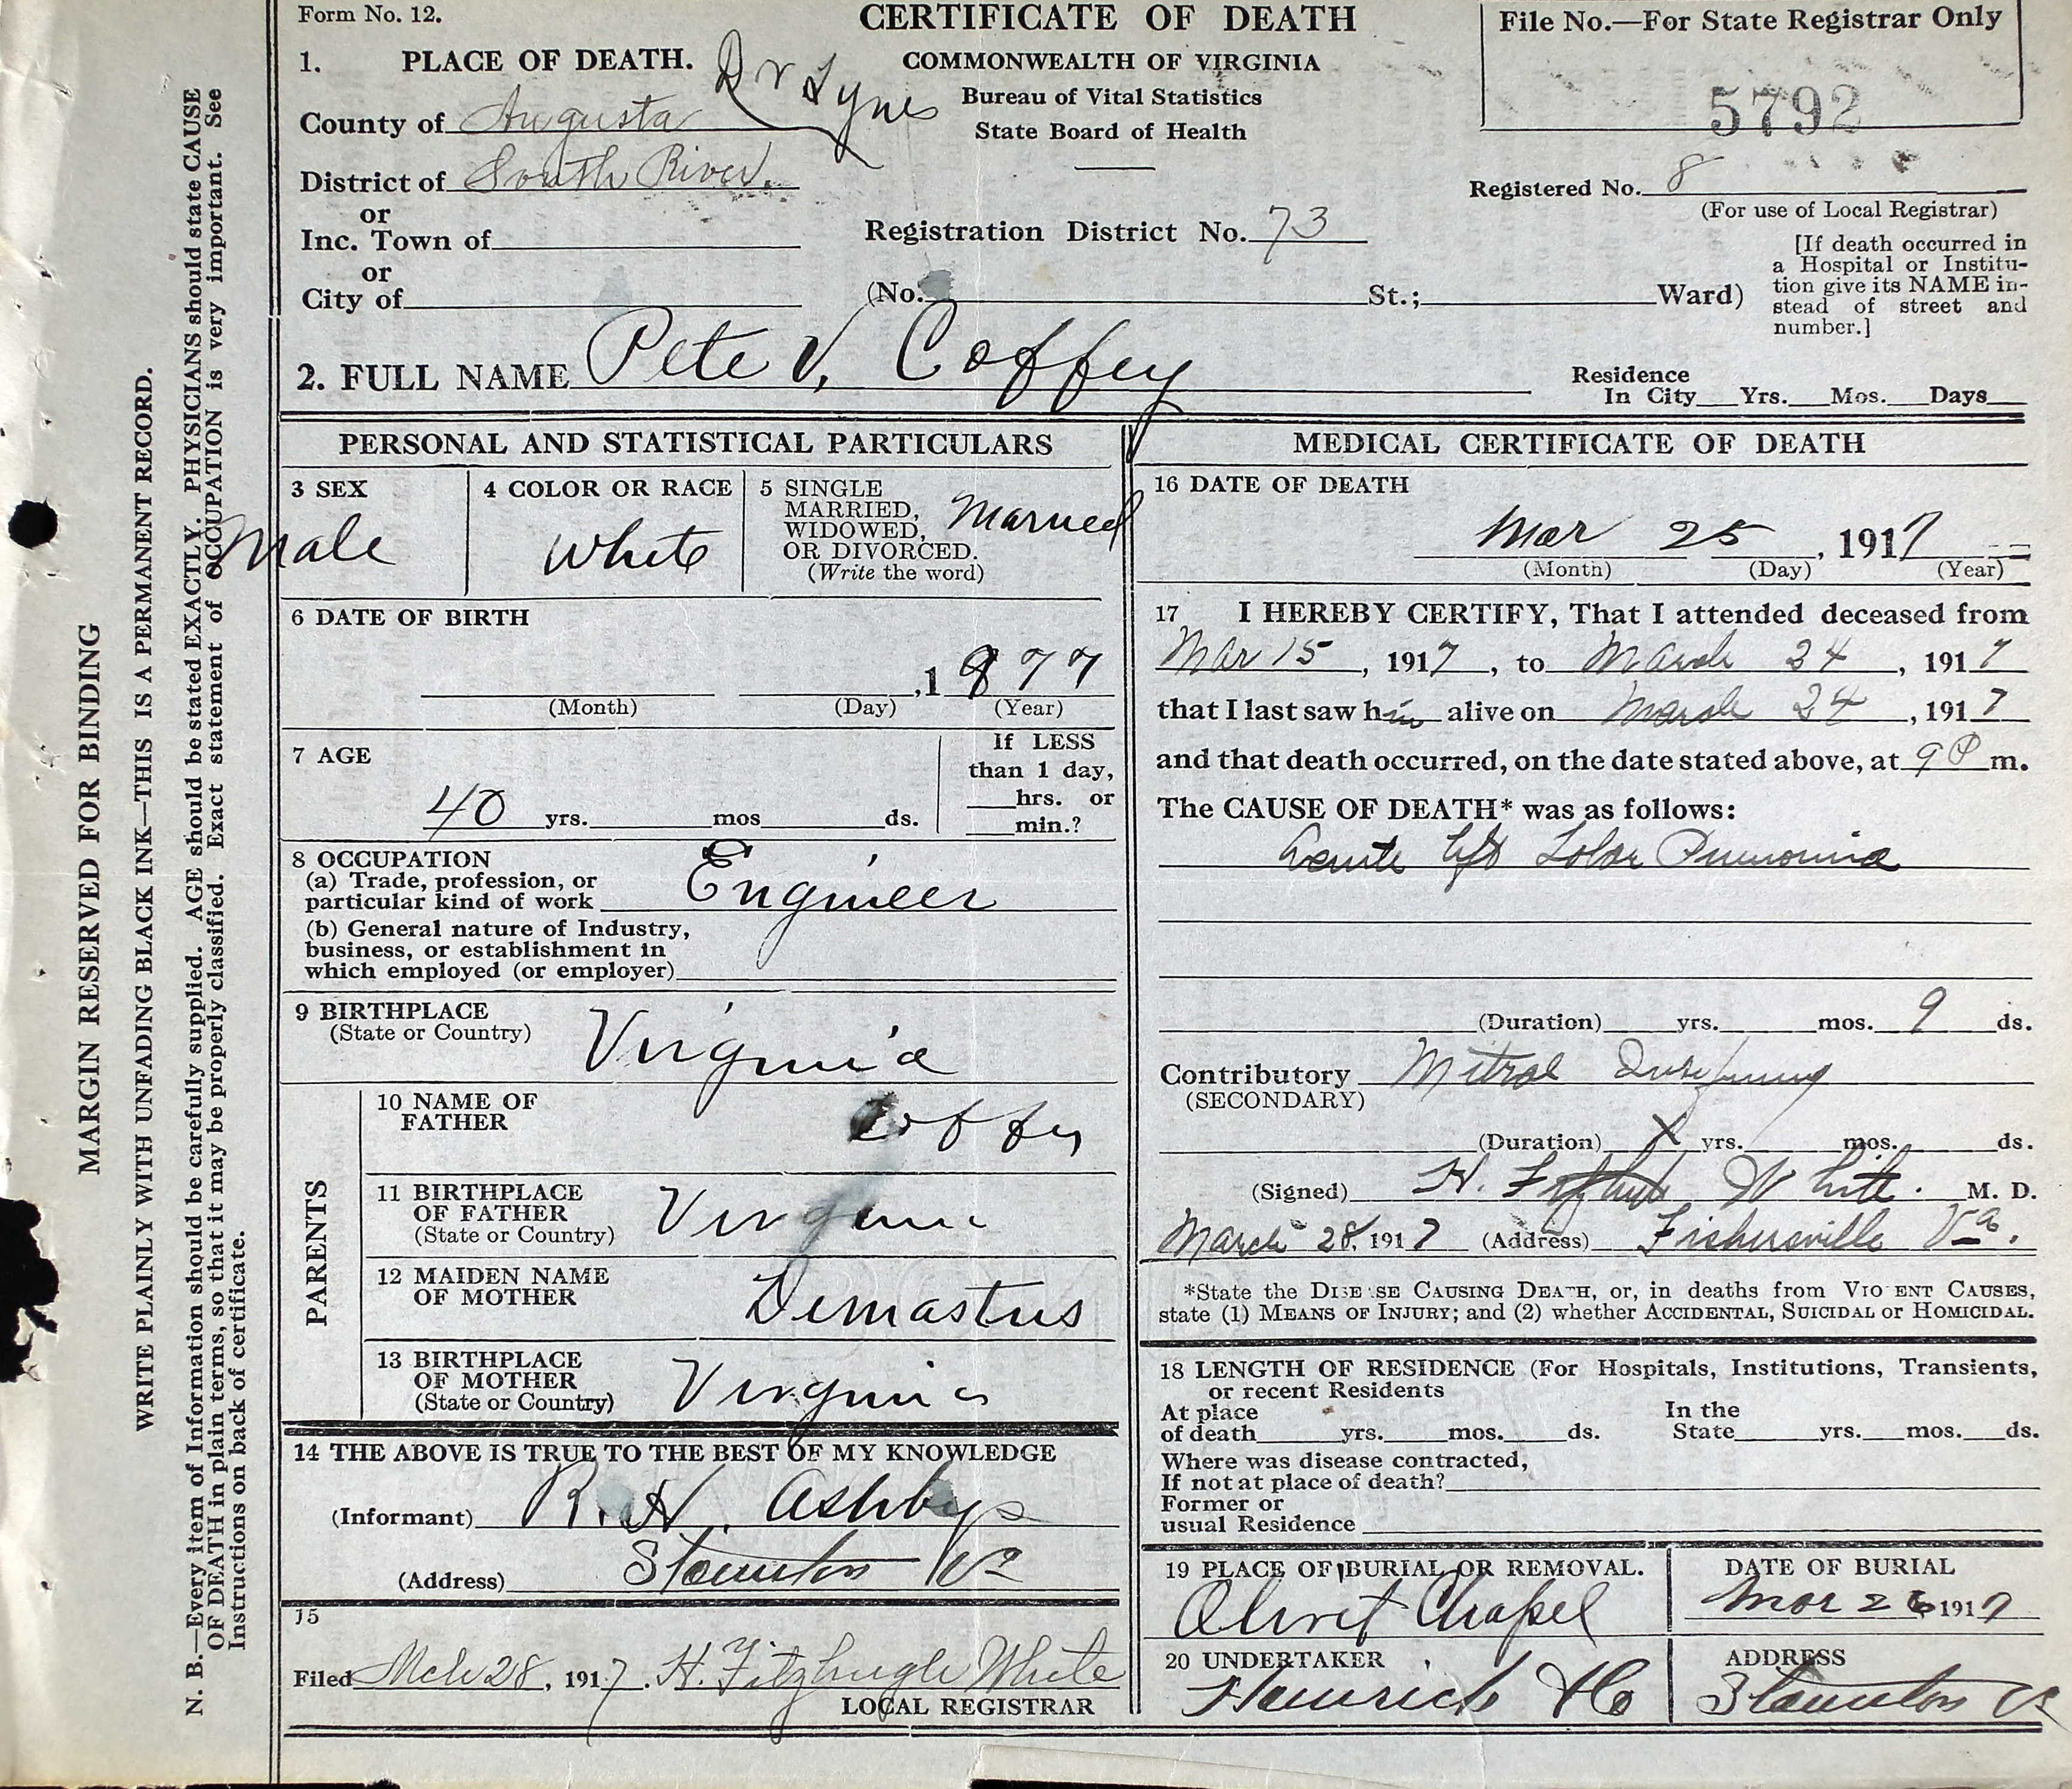 Form No. 12.
CERTIFICATE OF DEATH
File No.—For State Registrar Only
5792
1. PLACE OF DEATH.
COMMONWEALTH OF VIRGINIA
Dr Lynes
Bureau of Vital Statistics
County of Augusta
State Board of Health
District of South River.
Registered No. 8
(For use of Local Registrar)
or
Inc. Town of
Registration District No. 73
or
City of
(No. St.; Ward)
[If death occurred in
a Hospital or Institu-
tion give its NAME in-
stead of street and
number.]
2. FULL NAME Pete V. Coffey
Residence
In City Yrs. Mos. Days
PERSONAL AND STATISTICAL PARTICULARS
3 SEX
Male
4 COLOR OR RACE
White
5 SINGLE
MARRIED,
WIDOWED,
OR DIVORCED.
(Write the word)
Married
6 DATE OF BIRTH
,1877
(Month) (Day) (Year)
7 AGE
40 yrs. mos ds.
If LESS
than 1 day,
hrs. or
min.?
8 OCCUPATION
(a) Trade, profession, or
particular kind of work Engineer
(b) General nature of Industry,
business, or establishment in
which employed (or employer)
9 BIRTHPLACE
(State or Country)
Virginia
PARENTS
10 NAME OF
FATHER
Coffey
11 BIRTHPLACE
OF FATHER
(State or Country)
Virginia
12 MAIDEN NAME
OF MOTHER
Demastus
13 BIRTHPLACE
OF MOTHER
(State or Country)
Virginia
14 THE ABOVE IS TRUE TO THE BEST OF MY KNOWLEDGE
(Informant) R. H. Ashby
(Address) Staunton Va
15
Filed Mch 28, 1917. H. Fitzhugh White
LOCAL REGISTRAR
MEDICAL CERTIFICATE OF DEATH
16 DATE OF DEATH
Mar 25, 1917
(Month) (Day) (Year)
17 I HEREBY CERTIFY, That I attended deceased from
Mar 15, 1917, to March 24, 1917
that I last saw him alive on March 24, 1917
and that death occurred, on the date stated above, at 9 P m.
The CAUSE OF DEATH* was as follows:
Acute left Lobar Pneumonia
(Duration) yrs. mos. 9 ds.
Contributory Mitral
(SECONDARY)
(Duration) X yrs. mos. ds.
(Signed) H. Fitzhugh White. M. D.
March 28, 1917 (Address) Fishersville Va.
*State the DISEASE CAUSING DEATH, or, in deaths from VIOLENT CAUSES,
state (1) MEANS OF INJURY; and (2) whether ACCIDENTAL, SUICIDAL or HOMICIDAL.
18 LENGTH OF RESIDENCE (For Hospitals, Institutions, Transients,
or recent Residents
At place
of death yrs. mos. ds.
In the
State yrs. mos. ds.
Where was disease contracted,
If not at place of death?
Former or
usual Residence
19 PLACE OF BURIAL OR REMOVAL.
Olivet Chapel
DATE OF BURIAL
Mar 26 1917
20 UNDERTAKER
ADDRESS
Staunton Va
MARGIN RESERVED FOR BINDING
WRITE PLAINLY WITH UNFADING BLACK INK—THIS IS A PERMANENT RECORD.
N. B.—Every item of Information should be carefully supplied. AGE should be stated EXACTLY. PHYSICIANS should state CAUSE
OF DEATH in plain terms, so that it may be properly classified. Exact statement of OCCUPATION is very important. See
Instructions on back of certificate.